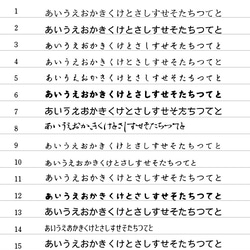 1 あいうえおかきくけとさしすせそたちつてと
2 あいうえおかきくけとさしすせそたちつてと
3 あいうえおかきくけとさしすせそたちつてと
4 あいうえおかきくけとさしすせそたちつてと
5 あいうえおかきくけとさしすせそたちつてと
6 あいうえおかきくけとさしすせそたちつてと
7 あいうえおかきくけとさしすせそたちつてと
8 あいうえおかきくけとさしすせそたちつてと
9 あいうえおかきくけとさしすせそたちつてと
10 あいうえおかきくけとさしすせそたちつてと
11 あいうえおかきくけとさしすせそたちつてと
12 あいうえおかきくけとさしすせそたちつてと
13 あいうえおかきくけとさしすせそたちつてと
14 あいうえおかきくけとさしすせそたちつてと
15 あいうえおかきくけとさしすせそたちつてと